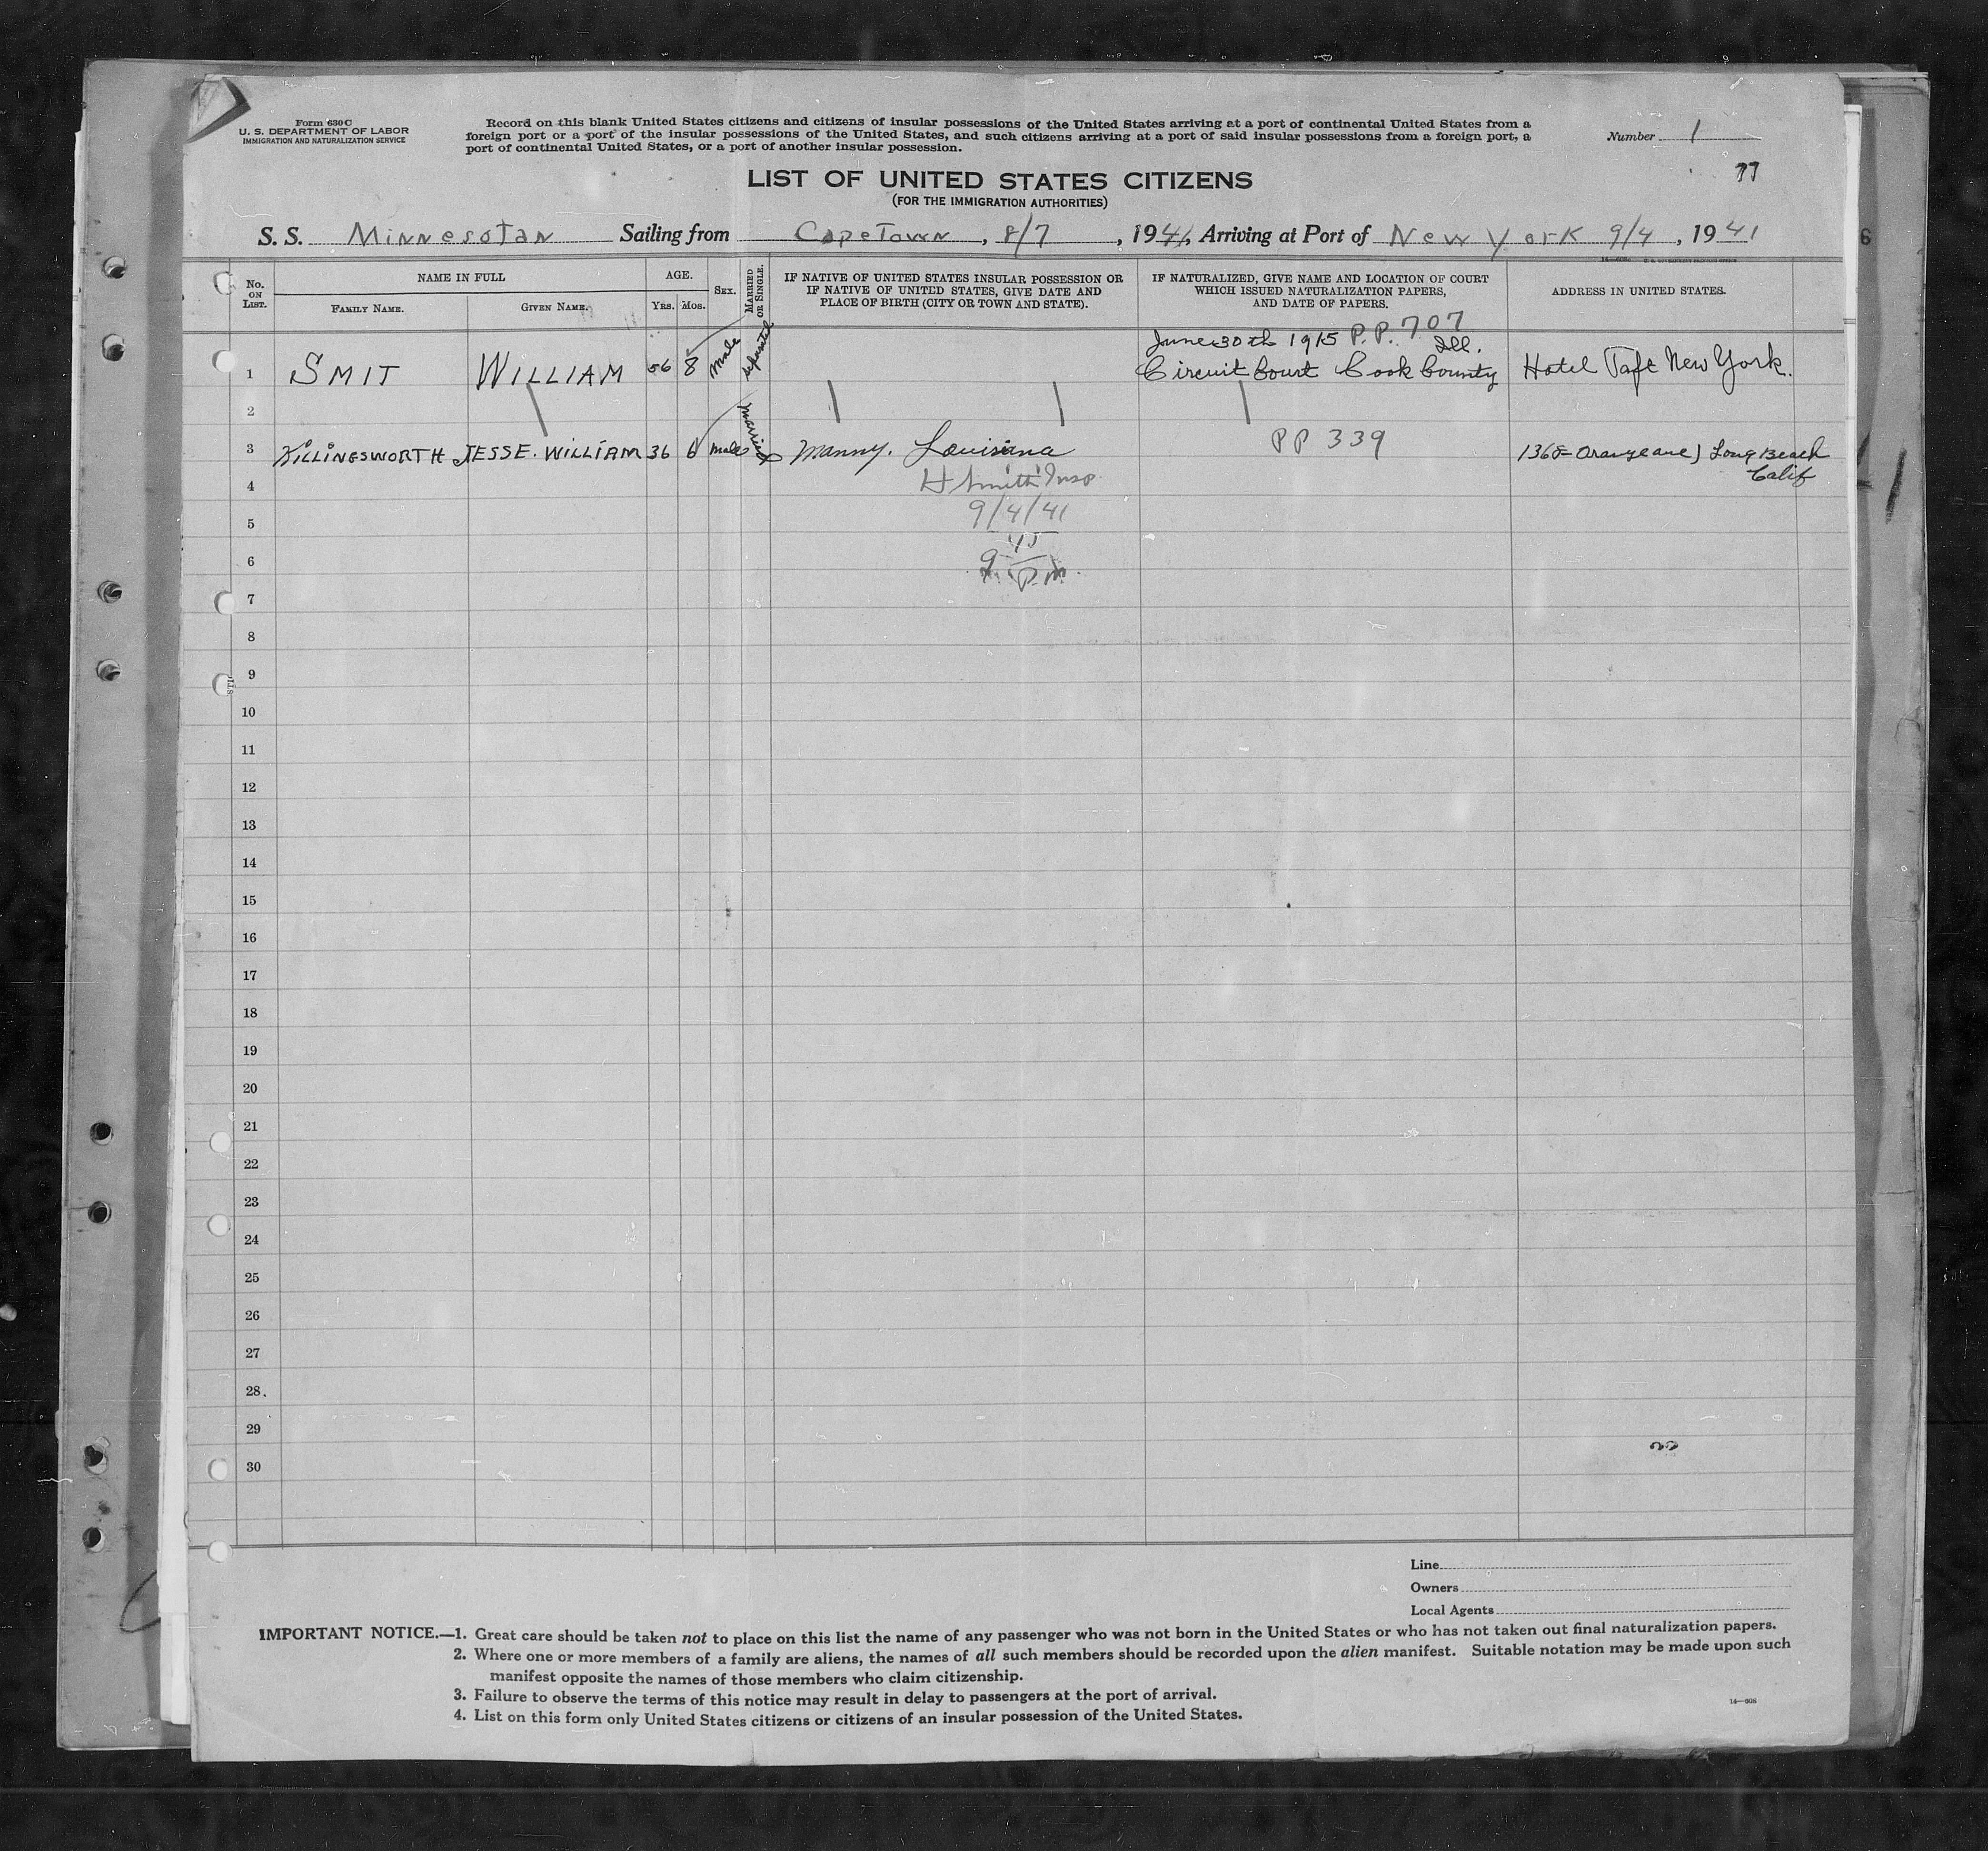 Form 630 C
U. S. DEPARTMENT OF LABOR
IMMIGRATION AND NATURALIZATION SERVICE
Record on this blank United States citizens and citizens of insular possessions of the United States arriving at a port of continental United States from a
foreign port or a port of the insular possessions of the United States, and such citizens arriving at a port of said insular possessions from a foreign port, a
port of continental United States, or a port of another insular possession.
Number 1
77
LIST OF UNITED STATES CITIZENS
(FOR THE IMMIGRATION AUTHORITIES)
S. S. Minnesotan Sailing from CapeTown, 8/7, 1941, Arriving at Port of New York 9/4, 1941
6
No. ON LIST.
NAME IN FULL
FAMILY NAME.
GIVEN NAME.
AGE.
YRS. MOS.
SEX.
MARRIED OR SINGLE.
IF NATIVE OF UNITED STATES INSULAR POSSESSION OR
IF NATIVE OF UNITED STATES, GIVE DATE AND
PLACE OF BIRTH (CITY OR TOWN AND STATE).
IF NATURALIZED, GIVE NAME AND LOCATION OF COURT
WHICH ISSUED NATURALIZATION PAPERS,
AND DATE OF PAPERS.
ADDRESS IN UNITED STATES.
June 30th 1915 P.P. 707
Ill.
1 SMIT WILLIAM 56 8 Male separated Circuit Court Cook County Hotel Taft New York.
2
3 KILLINGSWORTH JESSE. WILLIAM 36 6 Male married Manny. Louisiana PP 339 1368 Orange ave Long Beach
Calif
4 H Smith Insp.
5 9/4/41
6 9 45 P.M.
7
8
9
10
11
12
13
14
15
16
17
18
19
20
21
22
23
24
25
26
27
28.
29
30
Line
Owners
Local Agents
IMPORTANT NOTICE.—1. Great care should be taken not to place on this list the name of any passenger who was not born in the United States or who has not taken out final naturalization papers.
2. Where one or more members of a family are aliens, the names of all such members should be recorded upon the alien manifest. Suitable notation may be made upon such
manifest opposite the names of those members who claim citizenship.
3. Failure to observe the terms of this notice may result in delay to passengers at the port of arrival.
4. List on this form only United States citizens or citizens of an insular possession of the United States.
14—608